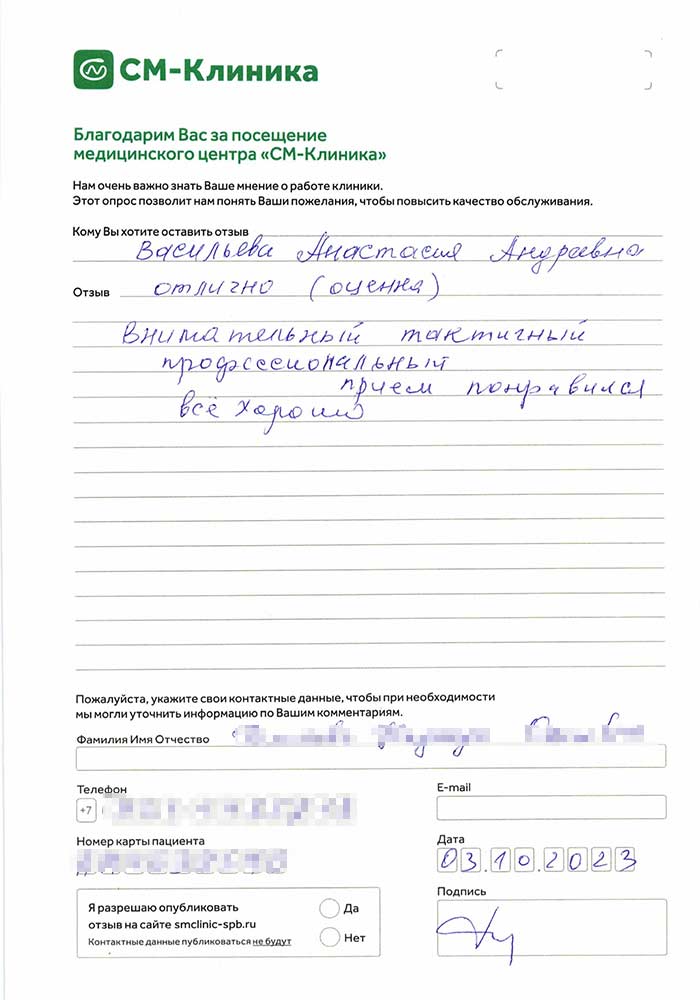 СМ-Клиника
Благодарим Вас за посещение
медицинского центра «СМ-Клиника»
Нам очень важно знать Ваше мнение о работе клиники.
Этот опрос позволит нам понять Ваши пожелания, чтобы повысить качество обслуживания.
Кому Вы хотите оставить отзыв
Васильева Анастасия Андреевна
Отзыв отлично (оценка)
внимательный тактичный
профессиональный
прием понравился
всё хорошо
Пожалуйста, укажите свои контактные данные, чтобы при необходимости
мы могли уточнить информацию по Вашим комментариям.
Фамилия Имя Отчество
Телефон
+7
E-mail
Номер карты пациента
Дата
03.10.2023
Подпись
Я разрешаю опубликовать
отзыв на сайте smclinic-spb.ru
Контактные данные публиковаться не будут
Да
Нет